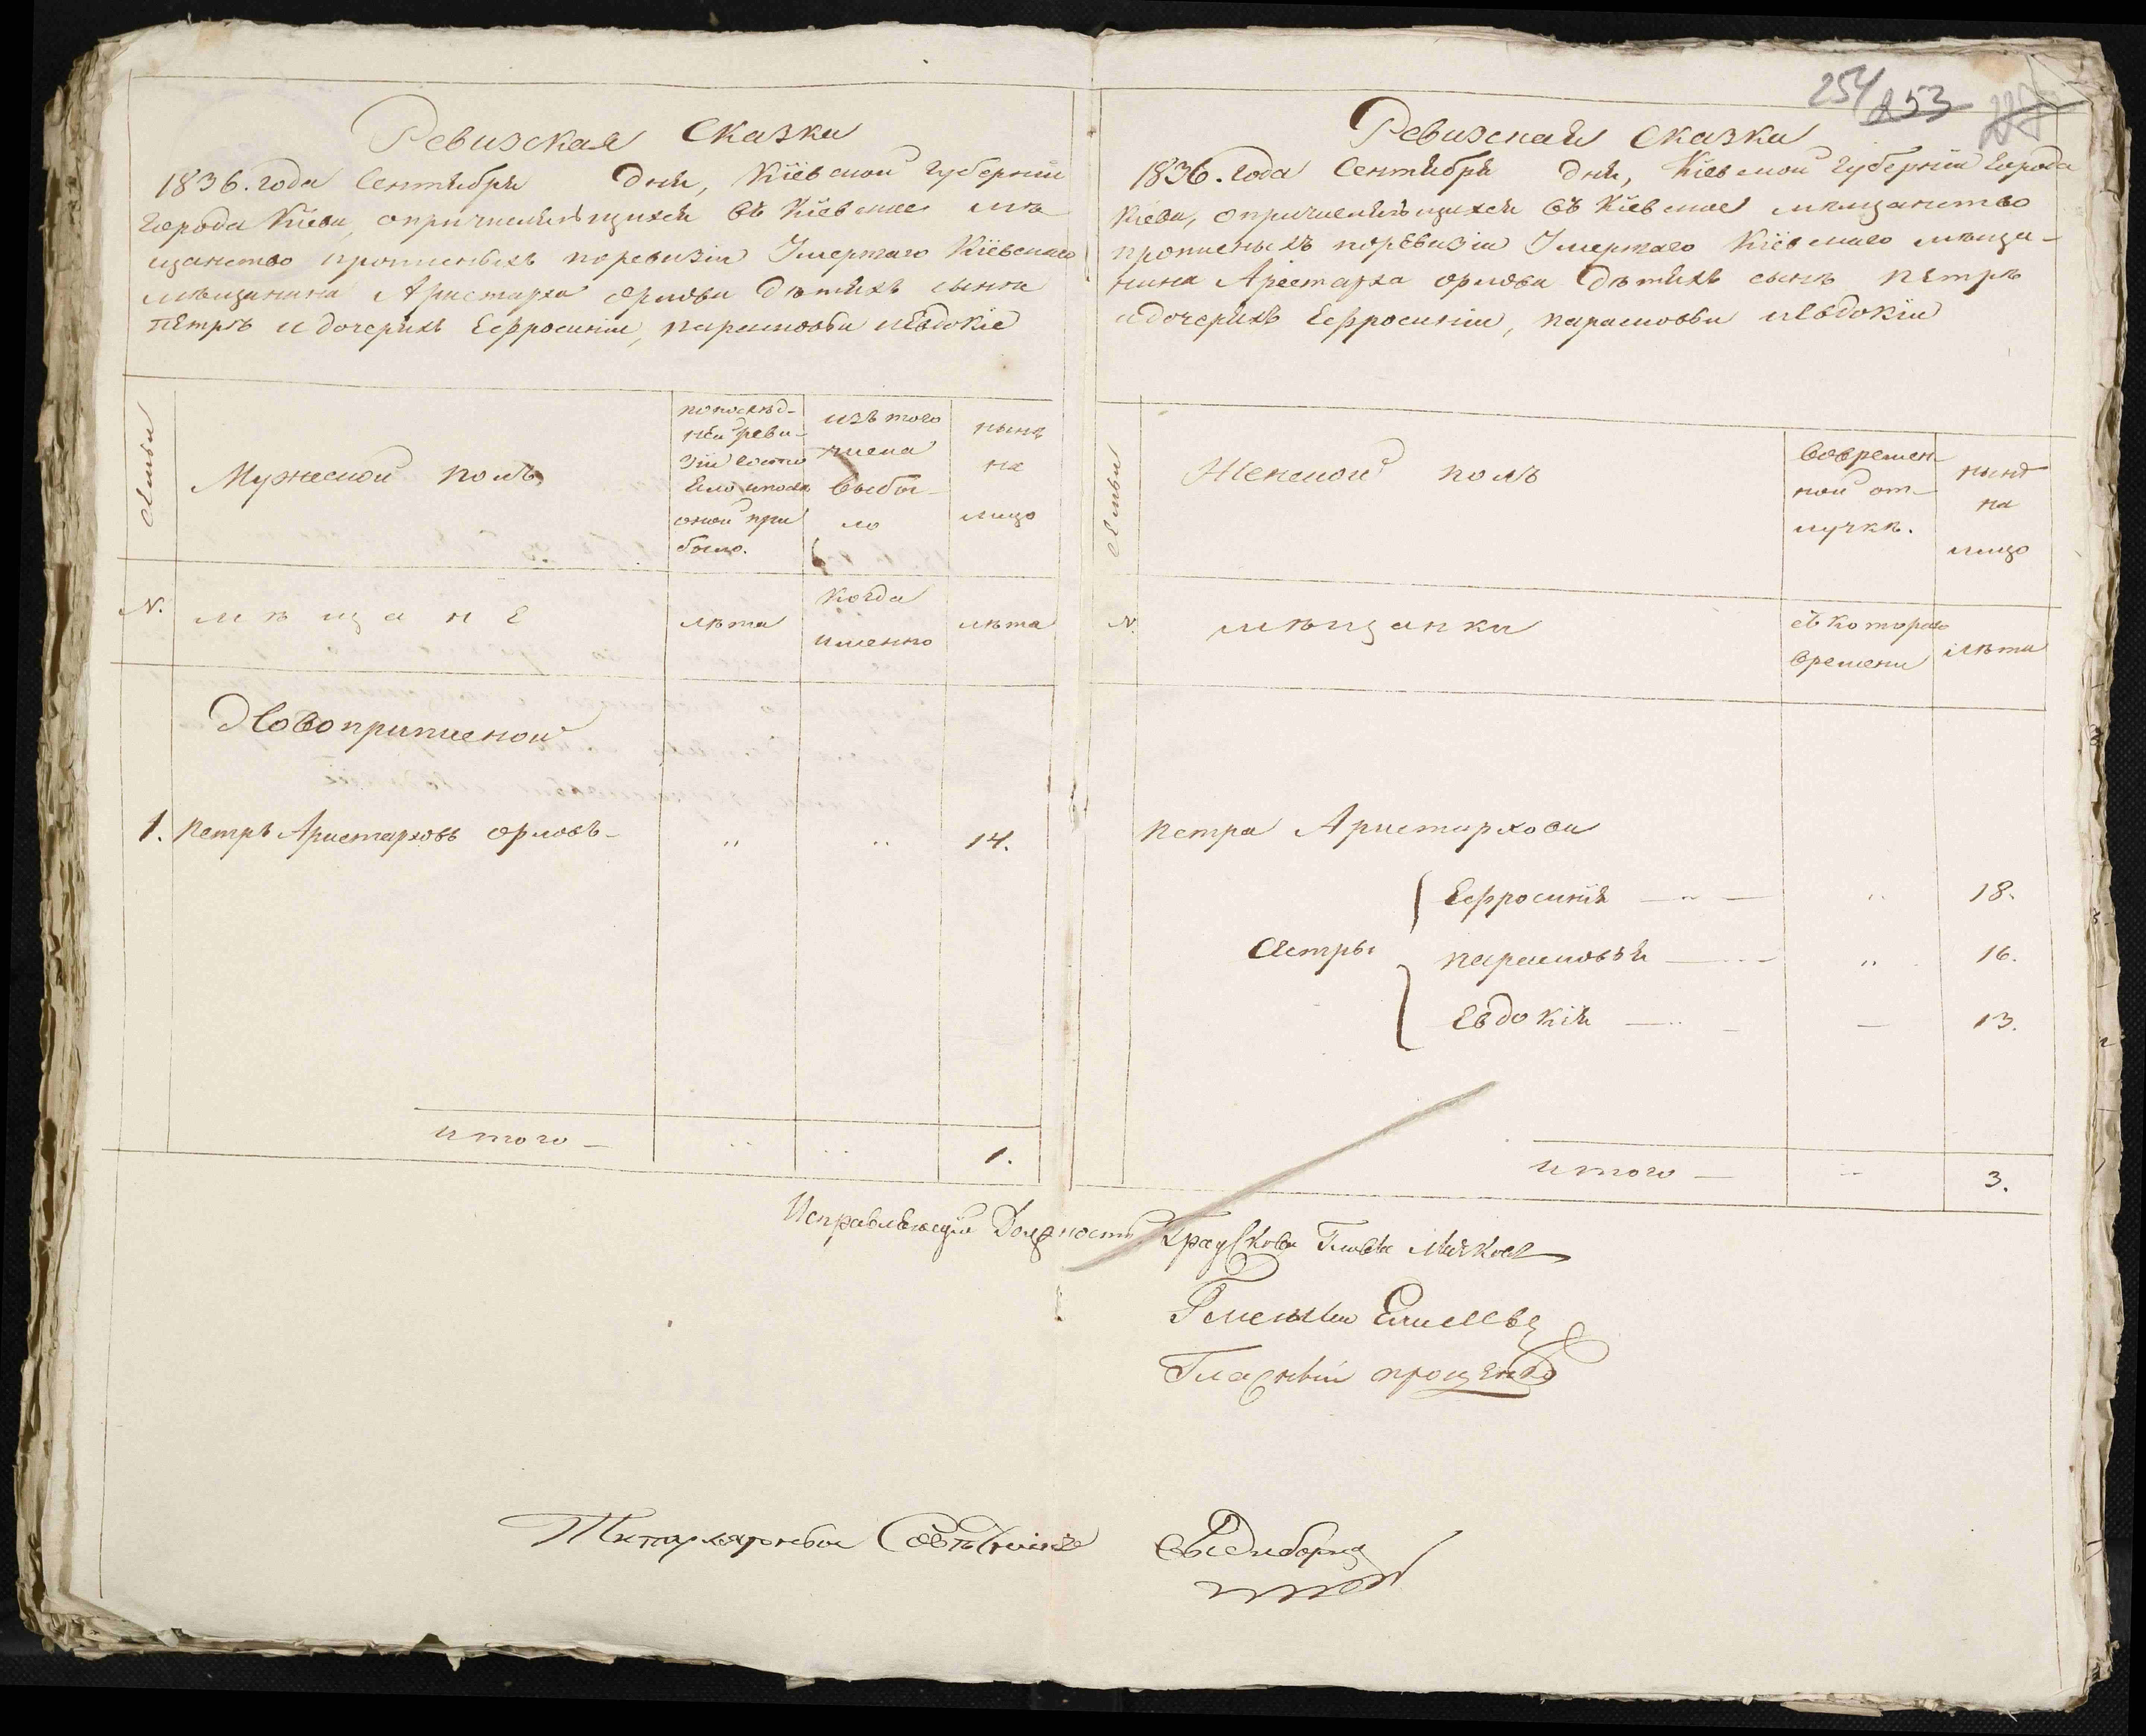 Ревизская Сказка
1836. года Сентября дня, Кіевской Губерніи
Города Кіева, опричислившихся въ Кіевское мѣ
щанство прописныхъ поревизіи Умержаго Кіевскаго
мѣщанина Аристарха Орлова дѣтяхъ сына
Петрѣ идочеряхъ Ефросиніи, парасковьи иЕвдокіе
Семьи
Мужеской полъ
попослѣд-
ней реви-
зіи состо
яло ипосл
оной при
было.
изъ того
числа
выбы-
ло
нынѣ
на
лицо
N.
мѣщане
лѣта
когда
именно
лѣта
Новоприписной
1. Петръ Аристарховъ Орловъ- " " 14.
итого — " " 1.
254 253
Ревизская Сказка
1836. года Сентября дня, Кіевской Губерніи Города
Кіева, опричислившихся въ Кіевское мѣщанство
прописныхъ поревизіи Умержаго Кіевскаго мѣща-
нина Аристарха орлова дѣтяхъ сынѣ петрѣ
идочеряхъ Ефросиніи, парасковьи иЕвдокіи
Семьи
Женской полъ
вовремен-
ной от-
лучкѣ.
нынѣ
на
лицо
N.
мѣщанки
съ котораго
времени
лѣта
Петра Аристархова
Ефросинія — " — " 18.
Сестры парасковья — " — " 16.
Евдокія — " — — 13.
итого — " 3.
Исправляющій Должность Градскова Главы
Гласный
Гласный проценко